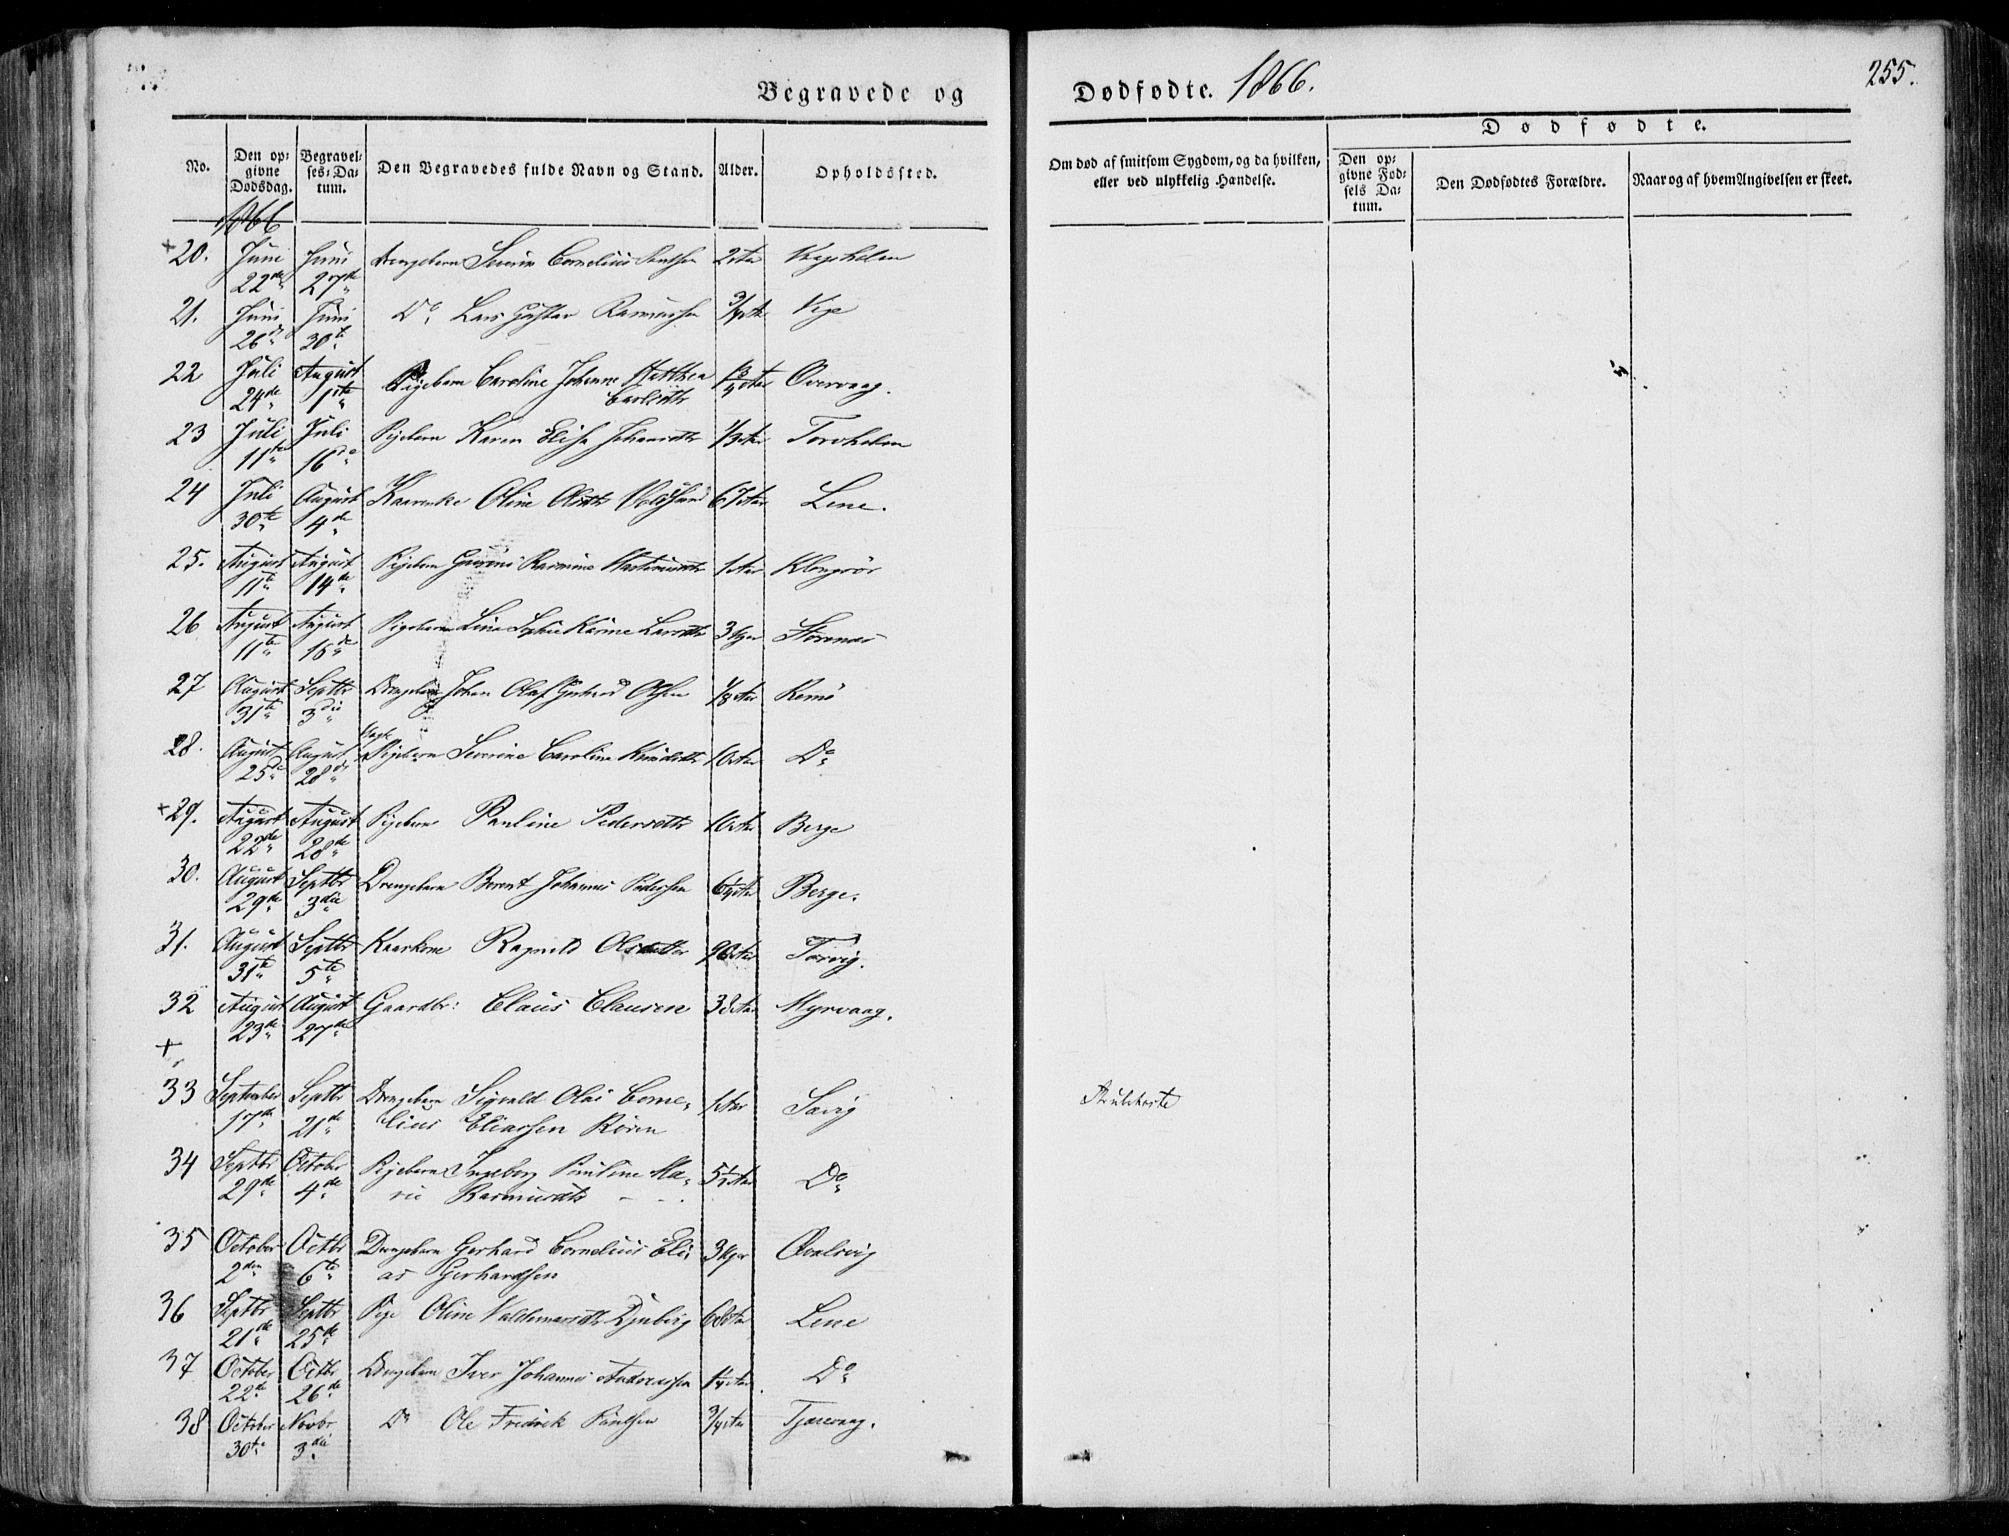 Begravede og Dødfødte. 1866.
255.
No.
Den opgivne Dødsdag.
Begravelses-Datum.
Den Begravedes fulde Navn og Stand.
Alder.
Opholdssted.
Om død af smitsom Sygdom, og da hvilken, eller ved ulykkelig Hændelse.
Dødfødte.
Den opgivne Fødsels Datum.
Den Dødfødtes Forældre.
Naar og af hvem Angivelsen er skeet.
1866
+ 20. Juni 22de Juni 27de Drengebarn Severin Cornelius
21. Juni 26de Juni 30te Do Lars Gustav Rasmussen 3/4 Aar Vige
22 Juli 24de August 1ste Pigebarn Caroline Johanne Matthea Carlsdttr Overvaag.
23 Juli 11te Juli 16de Pigebarn Karen Elise Johansdttr 1/3 Aar Torvholm
24 Juli 30te August 4de Oline 67 Aar Lene.
25. August 11te August 14de Pigebarn Rasmine 1 Aar
26 August 11te August 15de Pigebarn Line Sophie Karine Larsdttr 3 Uger Storenæs
27 August 31te Septbr 3die Drengebarn Johan Olaf Olsen 1/8 Aar Remø
28. August 25de August 28de Pigebarn Severine Caroline Knudsdttr 10 Aar Do
+ 29. August 22de August 28de Pigebarn Pauline Pedersdttr 10 Aar Berge
30. August 29de Septbr 3die Drengebarn Berent Johannes Pedersen 6 1/4 Aar Berge.
31. August 31te Septbr 5te Ragnild Olsdatter Tarvig.
32 August 23de August 27de Gaardbr: Claus Clausen 38 Aar Myrvaag.
+
33 September 17de Septbr 21de Drengebarn Sigvald Olai Corne-
lius Eliassen Røren 1 Aar Sævig Strubehoste
34 Septbr 29de October 4de Pigebarn Ingeborg Pauline Ma-
rie Rasmusdtr 5 1/2 Aar Do
35 October 2den Octbr 6te Drengebarn Gerhard Cornelius Eli-
as Gerhardsen 3 Uger
36 Septbr 21de Septbr 25de Pige Oline Valdemarsdtr Djubvig 68 Aar Lene
37 October 22de Octbr 26de Drengebarn Iver Johannes Andreassen 1/4 Aar Do
38 October 30te Novbr 3die Do Ole Fredrik 3/4 Aar Tjørvaag.